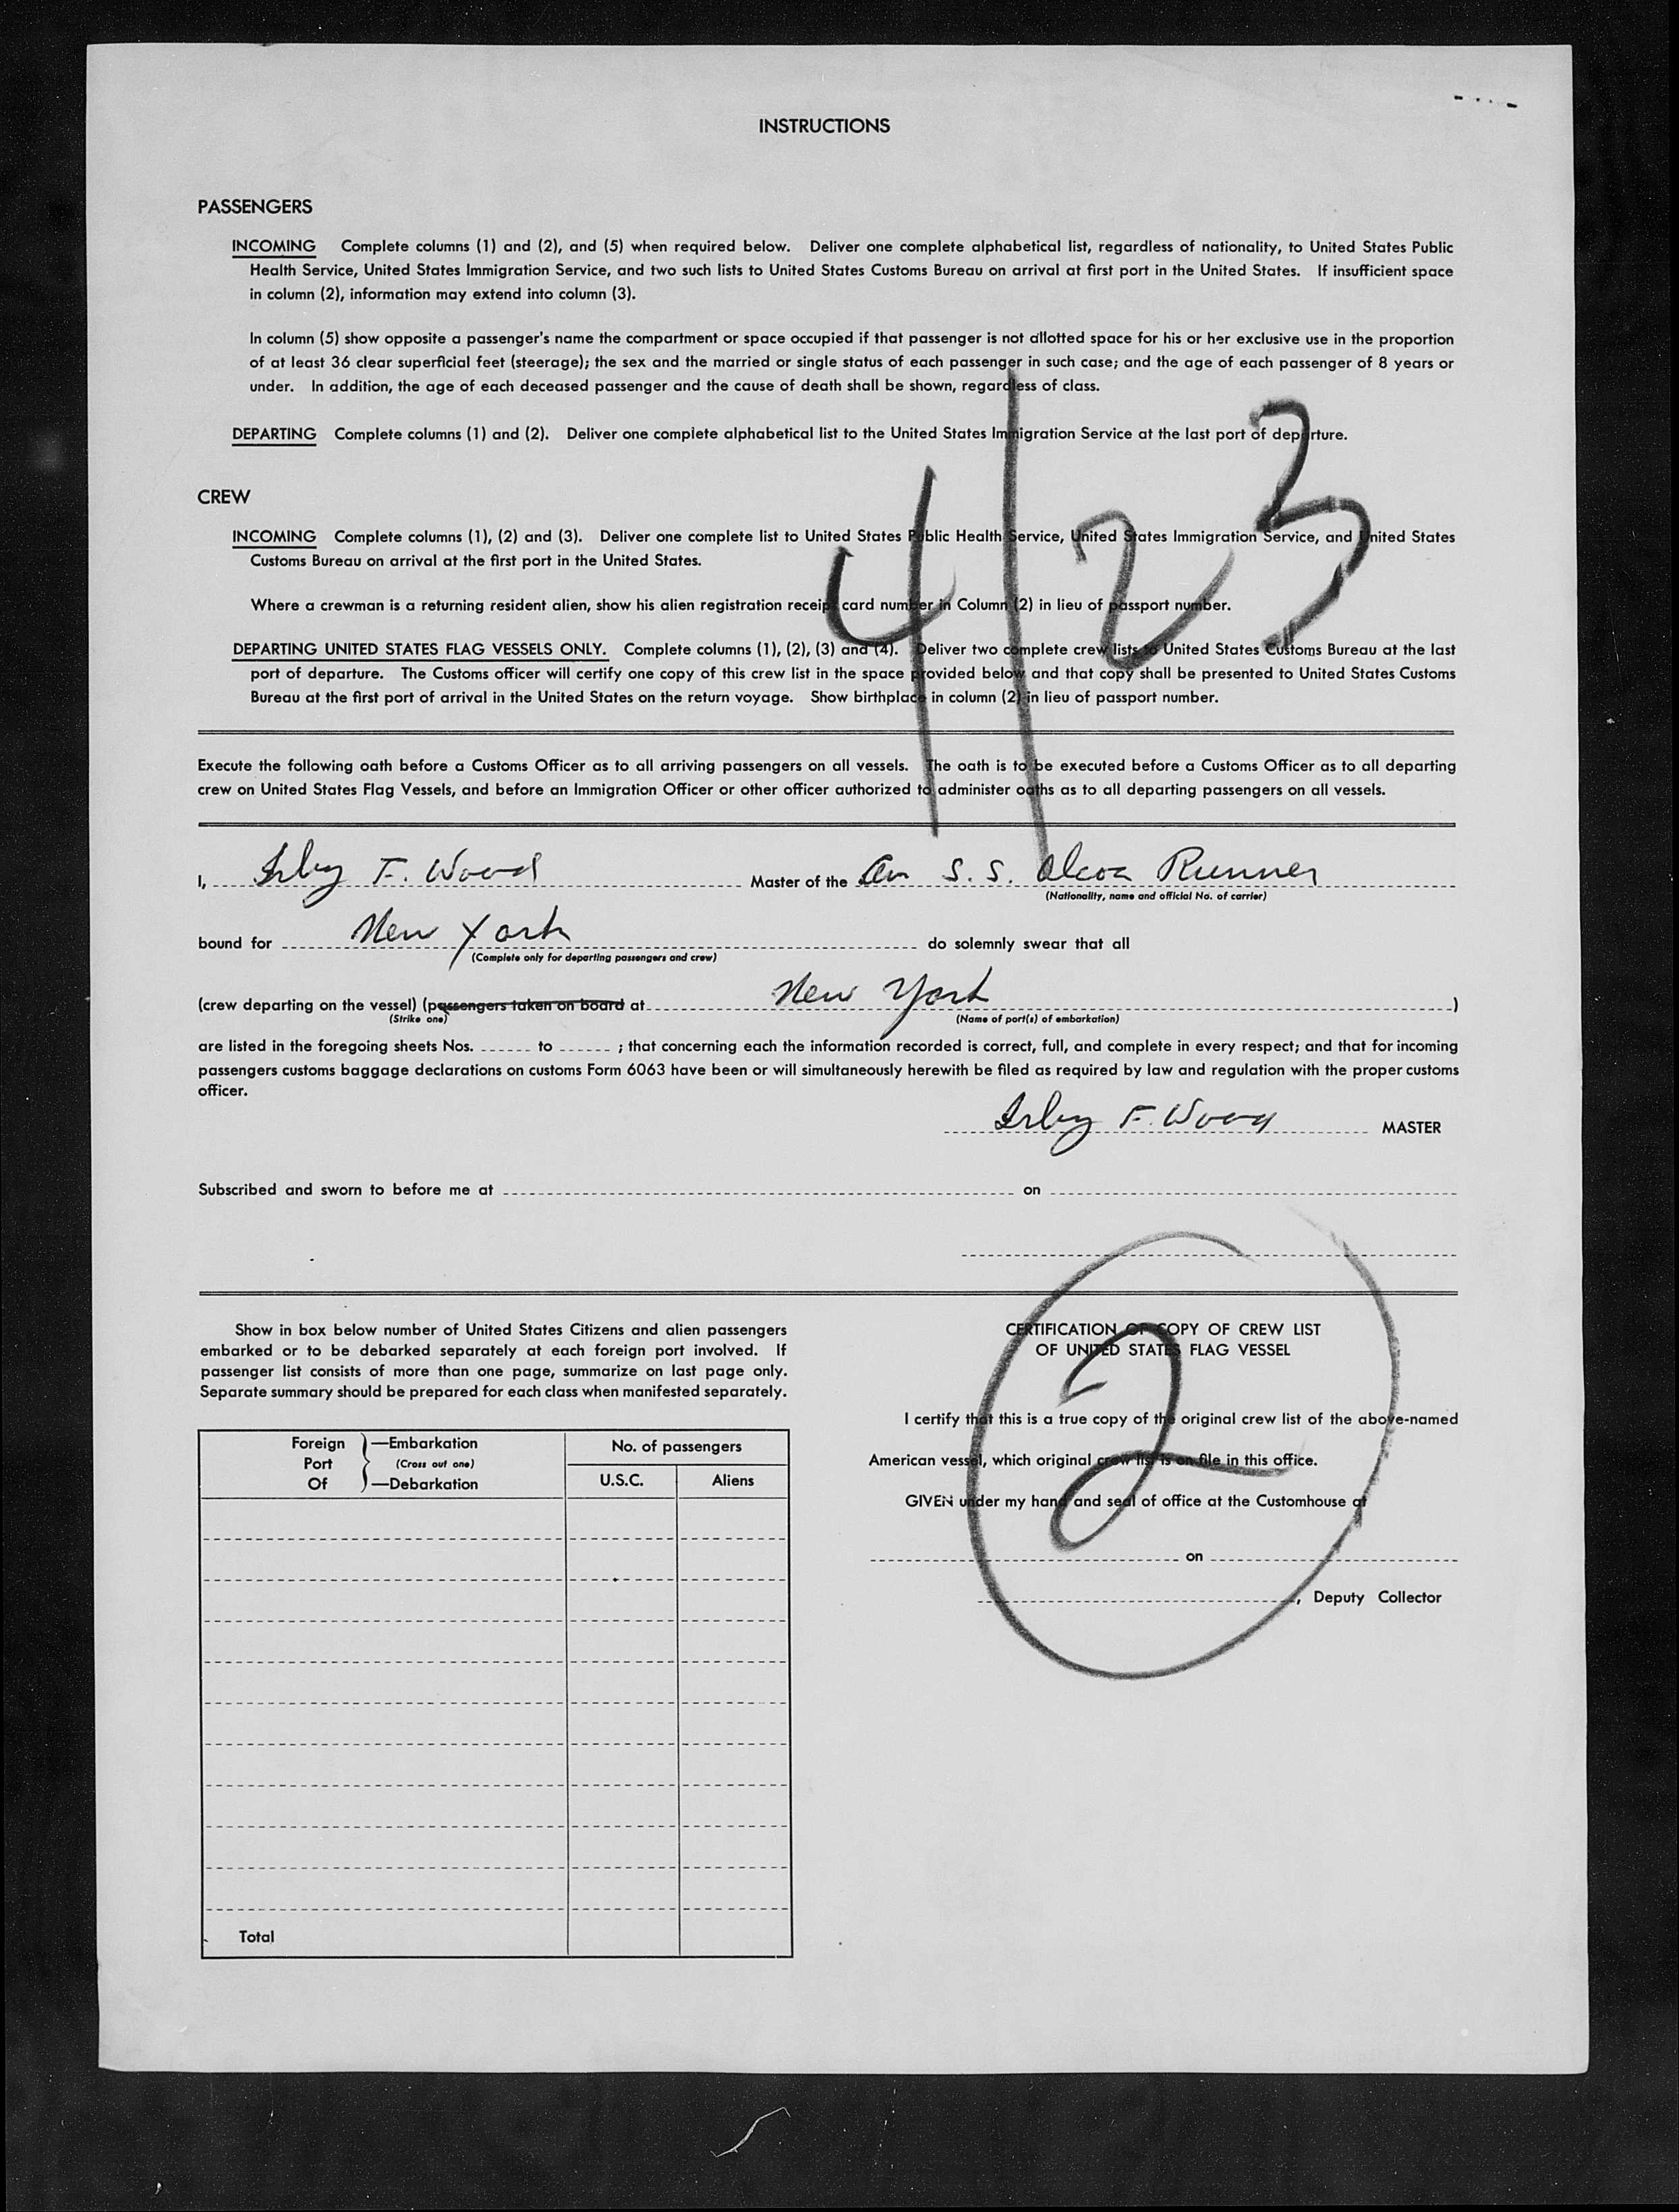 INSTRUCTIONS
PASSENGERS
INCOMING Complete columns (1) and (2), and (5) when required below. Deliver one complete alphabetical list, regardless of nationality, to United States Public
Health Service, United States Immigration Service, and two such lists to United States Customs Bureau on arrival at first port in the United States. If insufficient space
in column (2), information may extend into column (3).
In column (5) show opposite a passenger's name the compartment or space occupied if that passenger is not allotted space for his or her exclusive use in the proportion
of at least 36 clear superficial feet (steerage); the sex and the married or single status of each passenger in such case; and the age of each passenger of 8 years or
under. In addition, the age of each deceased passenger and the cause of death shall be shown, regardless of class.
DEPARTING Complete columns (1) and (2). Deliver one complete alphabetical list to the United States Immigration Service at the last port of departure.
4/23
CREW
INCOMING Complete columns (1), (2) and (3). Deliver one complete list to United States Public Health Service, United States Immigration Service, and United States
Customs Bureau on arrival at the first port in the United States.
Where a crewman is a returning resident alien, show his alien registration receipt card number in Column (2) in lieu of passport number.
DEPARTING UNITED STATES FLAG VESSELS ONLY. Complete columns (1), (2), (3) and (4). Deliver two complete crew lists to United States Customs Bureau at the last
port of departure. The Customs officer will certify one copy of this crew list in the space provided below and that copy shall be presented to United States Customs
Bureau at the first port of arrival in the United States on the return voyage. Show birthplace in column (2) in lieu of passport number.
Execute the following oath before a Customs Officer as to all arriving passengers on all vessels. The oath is to be executed before a Customs Officer as to all departing
crew on United States Flag Vessels, and before an Immigration Officer or other officer authorized to administer oaths as to all departing passengers on all vessels.
I, Irby F. Wood Master of the Am S.S. Alcoa Runner
(Nationality, name and official No. of carrier)
bound for New York do solemnly swear that all
(Complete only for departing passengers and crew)
(crew departing on the vessel) (passengers taken on board at New York )
(Strike one) (Name of port(s) of embarkation)
are listed in the foregoing sheets Nos. to ; that concerning each the information recorded is correct, full, and complete in every respect; and that for incoming
passengers customs baggage declarations on customs Form 6063 have been or will simultaneously herewith be filed as required by law and regulation with the proper customs
officer.
Irby F. Wood MASTER
Subscribed and sworn to before me at on
Show in box below number of United States Citizens and alien passengers
embarked or to be debarked separately at each foreign port involved. If
passenger list consists of more than one page, summarize on last page only.
Separate summary should be prepared for each class when manifested separately.
Foreign —Embarkation No. of passengers
Port (Cross out one)
Of —Debarkation U.S.C. Aliens
Total
CERTIFICATION OF COPY OF CREW LIST
OF UNITED STATES FLAG VESSEL
2
I certify that this is a true copy of the original crew list of the above-named
American vessel, which original crew list is on file in this office.
GIVEN under my hand and seal of office at the Customhouse at
on
, Deputy Collector